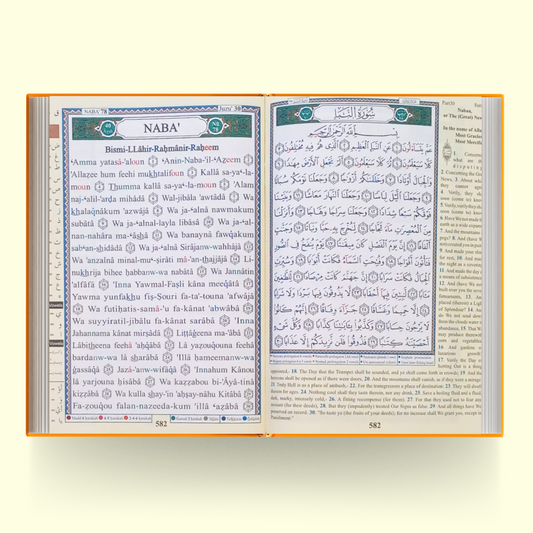 NABA' 78
Juzu' 30
NABA'
Bismi-LLâhir-Raḥmânir-Raḥeem
‘Amma yatasâ-’aloun ① ‘Anin-Naba-’il-‘Aẓeem ②
’Allaẓee hum feehi mukhtalifoun ③ Kallâ sa-ya‘-la-
moun ④ Thumma kallâ sa-ya‘-la-moun ⑤ ’Alam
naj-‘alil-’arḍa mihâdâ ⑥ Wal-jibâla ’awtâdâ ⑦ Wa
khalaqnâkum ’azwâjâ ⑧ Wa ja-‘alnâ nawmakum
subâtâ ⑨ Wa ja-‘alnal-layla libâsâ ⑩ Wa ja-‘al-
nan-nahâra ma-‘âshâ ⑪ Wa banaynâ fawqakum
sab‘an-shidâdâ ⑫ Wa ja-‘alnâ Sirâjanw-wahhâjâ ⑬
Wa ’anzalnâ minal-mu‘-ṣirâti mâ-’an-thajjâjâ ⑭ Li-
nukhrija bihee ḥabbanw-wa nabâtâ ⑮ Wa Jannâtin
’alfâfâ ⑯ ’Inna Yawmal-Faṣli kâna meeqâtâ ⑰
Yawma yunfakhu fiṣ-Ṣouri fa-ta’-touna ’afwâjâ
⑱ Wa futiḥatis-samâ-’u fa-kânat ’abwâbâ ⑲
Wa suyyiratil-jibâlu fa-kânat sarâbâ ⑳ ’Inna
Jahannama kânat mirṣâdâ ㉑ Liṭṭâgheena ma-’âbâ ㉒
Lâbitheena feehâ ’aḥqâbâ ㉓ Lâ yaẓouqouna feehâ
bardanw-wa lâ sharâbâ ㉔ ’Illâ ḥameemanw-wa
ghassâqâ ㉕ Jazâ-’anw-wifâqâ ㉖ ’Innahum Kânou
lâ yarjouna ḥisâbâ ㉗ Wa kaẓẓabou bi-’Âyâ-tinâ
kiẓẓâbâ ㉘ Wa kulla shay-’in ’aḥṣay-nâhu Kitâbâ ㉙
Fa-ẓouqou falan-nazeeda-kum ’illâ ‘aẓâbâ ㉚
582
سُورَةُ النَّبَإِ
بِسْمِ اللَّهِ الرَّحْمَٰنِ الرَّحِيمِ
عَمَّ يَتَسَاءَلُونَ ۝١ عَنِ النَّبَإِ الْعَظِيمِ ۝٢ الَّذِي هُمْ فِيهِ مُخْتَلِفُونَ ۝٣
كَلَّا سَيَعْلَمُونَ ۝٤ ثُمَّ كَلَّا سَيَعْلَمُونَ ۝٥ أَلَمْ نَجْعَلِ الْأَرْضَ مِهَادًا ۝٦
وَالْجِبَالَ أَوْتَادًا ۝٧ وَخَلَقْنَاكُمْ أَزْوَاجًا ۝٨ وَجَعَلْنَا نَوْمَكُمْ سُبَاتًا ۝٩
وَجَعَلْنَا اللَّيْلَ لِبَاسًا ۝١٠ وَجَعَلْنَا النَّهَارَ مَعَاشًا ۝١١ وَبَنَيْنَا
فَوْقَكُمْ سَبْعًا شِدَادًا ۝١٢ وَجَعَلْنَا سِرَاجًا وَهَّاجًا ۝١٣ وَأَنزَلْنَا
مِنَ الْمُعْصِرَاتِ مَاءً ثَجَّاجًا ۝١٤ لِّنُخْرِجَ بِهِ حَبًّا وَنَبَاتًا ۝١٥ وَجَنَّاتٍ
أَلْفَافًا ۝١٦ إِنَّ يَوْمَ الْفَصْلِ كَانَ مِيقَاتًا ۝١٧ يَوْمَ يُنفَخُ فِي الصُّورِ
فَتَأْتُونَ أَفْوَاجًا ۝١٨ وَفُتِحَتِ السَّمَاءُ فَكَانَتْ أَبْوَابًا ۝١٩ وَسُيِّرَتِ
الْجِبَالُ فَكَانَتْ سَرَابًا ۝٢٠ إِنَّ جَهَنَّمَ كَانَتْ مِرْصَادًا ۝٢١ لِّلطَّاغِينَ
مَآبًا ۝٢٢ لَّابِثِينَ فِيهَا أَحْقَابًا ۝٢٣ لَّا يَذُوقُونَ فِيهَا بَرْدًا وَلَا شَرَابًا
۝٢٤ إِلَّا حَمِيمًا وَغَسَّاقًا ۝٢٥ جَزَاءً وِفَاقًا ۝٢٦ إِنَّهُمْ كَانُوا
لَا يَرْجُونَ حِسَابًا ۝٢٧ وَكَذَّبُوا بِآيَاتِنَا كِذَّابًا ۝٢٨ وَكُلَّ شَيْءٍ
أَحْصَيْنَاهُ كِتَابًا ۝٢٩ فَذُوقُوا فَلَن نَّزِيدَكُمْ إِلَّا عَذَابًا ۝٣٠
Part30
Nabaa,
or The (Great) New
In the name of Alla
Most Gracio
Most Mercifu
1. Concernin
what are th
disputing
2. Concerning the Gre
News, 3. About whi
they cannot agre
4. Verily, they sha
soon (come to) know
5. Verily, verily they sha
soon (come to) know
6. Have We not made th
earth as a wide expans
7. And the mountains
pegs? 8. And (have W
not) created you in pair
9. And made your slee
for rest, 10. And mad
the night as a covering
11. And made the day a
a means of subsistence
12. And (have We not
built over you the seve
firmaments, 13. And
placed (therein) a Light
of Splendour? 14. And
do We not send down
from the clouds water in
abundance, 15. That We
may produce therewith
corn and vegetables,
16. And gardens of
luxurious growth?
17. Verily the Day of
Sorting Out is a thing
appointed,- 18. The Day that the Trumpet shall be sounded, and ye shall come forth in crowds; 19. And the
heavens shall be opened as if there were doors, 20. And the mountains shall vanish, as if they were a mirage.
21. Truly Hell is as a place of ambush,- 22. For the transgressors a place of destination: 23. They will dwell
therein for ages. 24. Nothing cool shall they taste therein, nor any drink, 25. Save a boiling fluid and a fluid,
dark, murky, intensely cold,- 26. A fitting recompense (for them). 27. For that they used not to fear any
account (for their deeds), 28. But they (impudently) treated Our Signs as false. 29. And all things have We
preserved on record. 30. "So taste ye (the fruits of your deeds); for no increase shall We grant you, except in
Punishment."
582